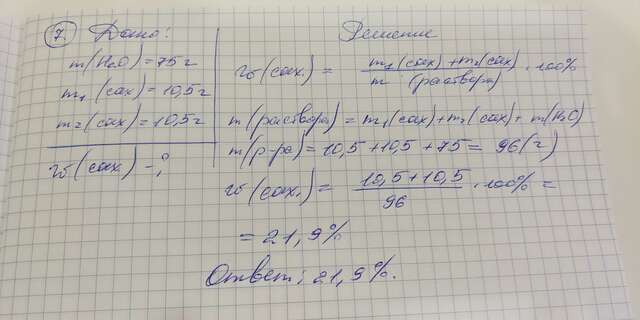 7. Дано:
m(H₂O) = 75 г
m₁(сах) = 10,5 г
m₂(сах) = 10,5 г
w(сах.) - ?
Решение
w(сах.) = m₁(сах) + m₂(сах) / m(раствора) · 100%
m(раствора) = m₁(сах) + m₂(сах) + m(H₂O)
m(р-ра) = 10,5 + 10,5 + 75 = 96(г)
w(сах.) = 10,5 + 10,5 / 96 · 100% =
= 21,9%
Ответ: 21,9%.